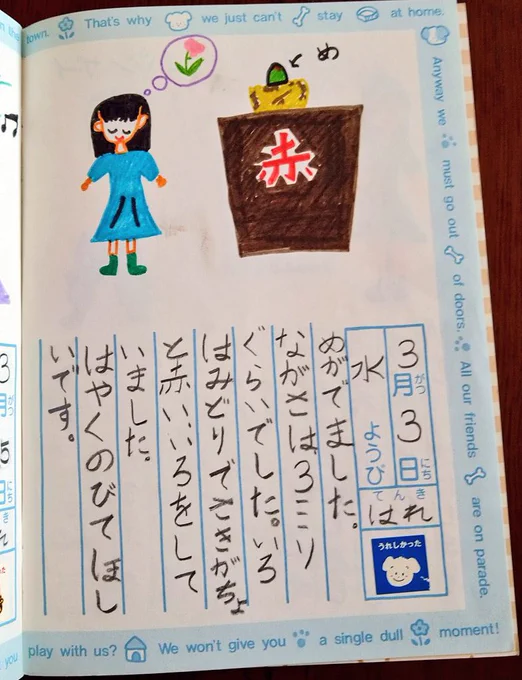 town. That's why we just can't stay at home.
Anyway we must go out of doors. All our friends are on parade.
め
赤
3月3日
がつ
にち
水ようび
てんき
はれ
うれしかった
めがでました。
ながさは、3ミリ
ぐらいでした。いろ
はみどりでさきがちょ
と赤いいろをして
いました。
はやくのびてほし
いです。
play with us? We won't give you a single dull moment!